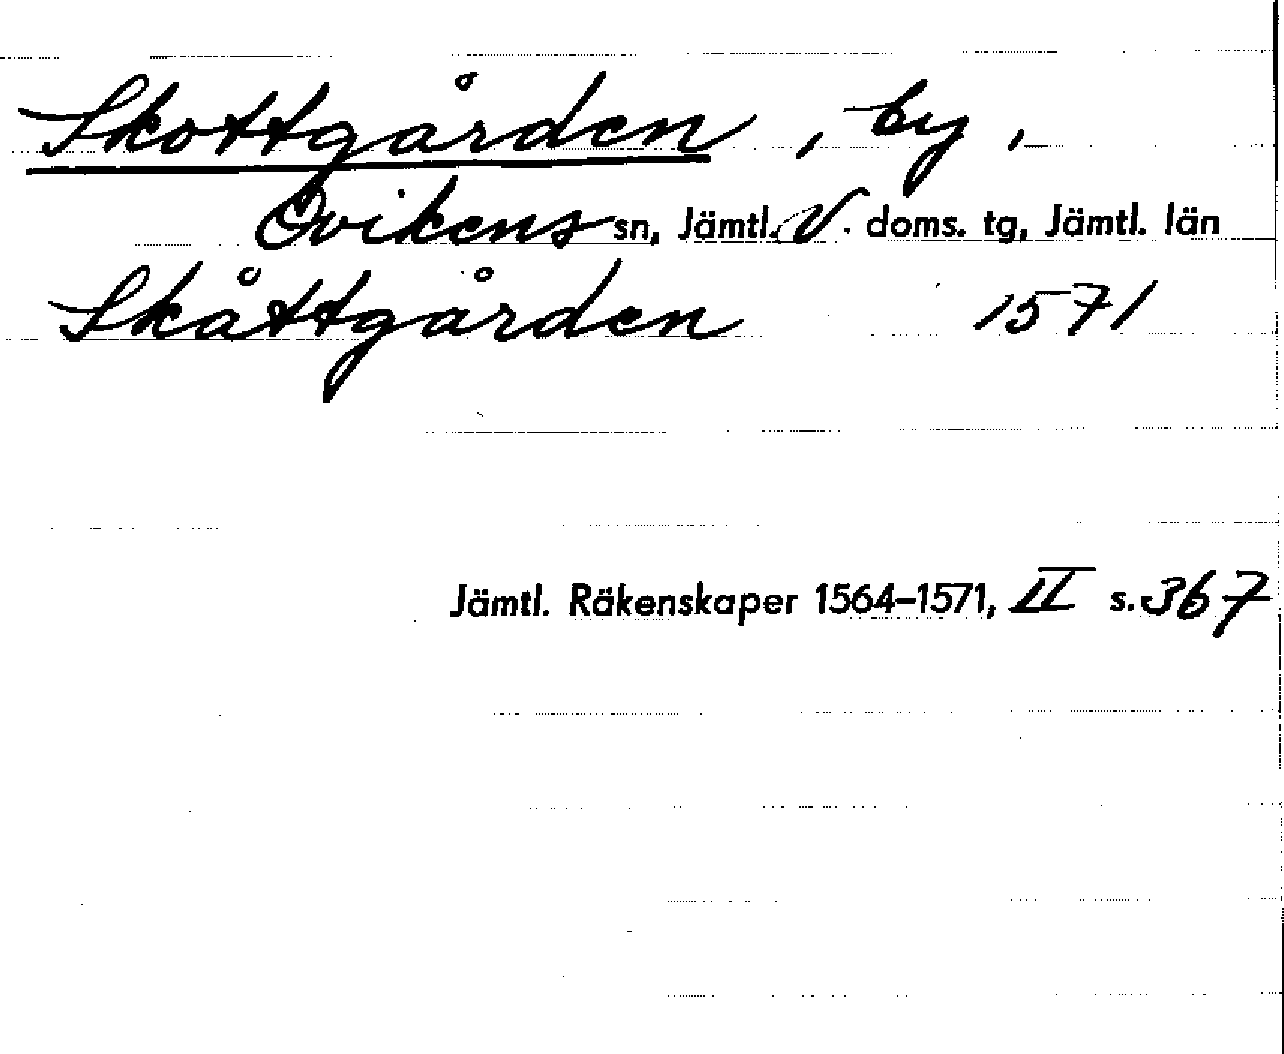 Skottgården, by,
Ovikens sn, Jämtl. V. doms. tg, Jämtl. län
Skåttgården 1571
Jämtl. Räkenskaper 1564–1571, II s. 367